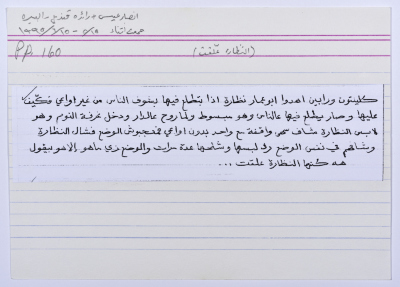 انصار عيسى
١٩٩٥
PP, 160
(النظاره علّقت)
كلينتون ورابين اهدوا ابو عمار نظارة اذا بتطلع فيها بشوف الناس من غير اواعي فكيّف
عليها وصار يطلع فيها عالناس وهو مبسوط ولما روح عالدار ودخل غرفة النوم وهو
لابس النظارة شاف سهى واقفة مع واحد بدون اواعي فعجبوش الوضع فشال النظارة
وشافهم في نفس الوضع رد لبسها وشلحها عدة مرات والوضع زي ماهو إلا هو بيقول
هه كنها النظارة علقت ...